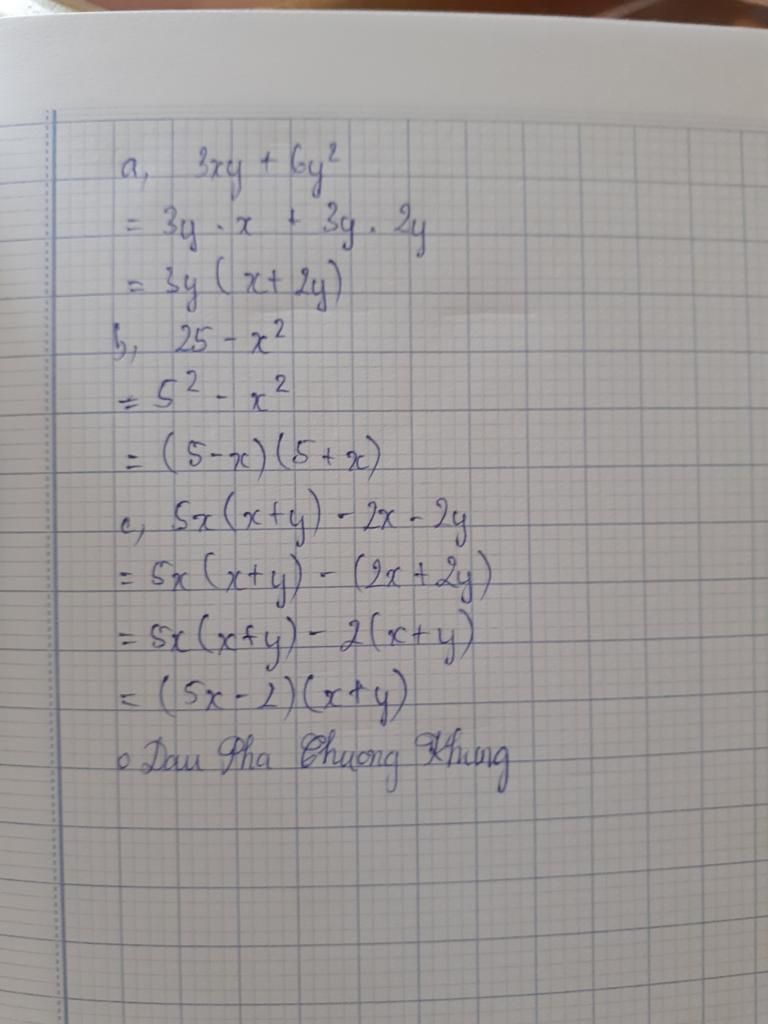 a, 3xy + 6y²
= 3y . x + 3y . 2y
= 3y (x + 2y)
b, 25 - x²
= 5² - x²
= (5-x)(5+x)
c, 5x(x+y) - 2x - 2y
= 5x(x+y) - (2x + 2y)
= 5x(x+y) - 2(x+y)
= (5x - 2)(x+y)
o Dau Pha Thuong Khung